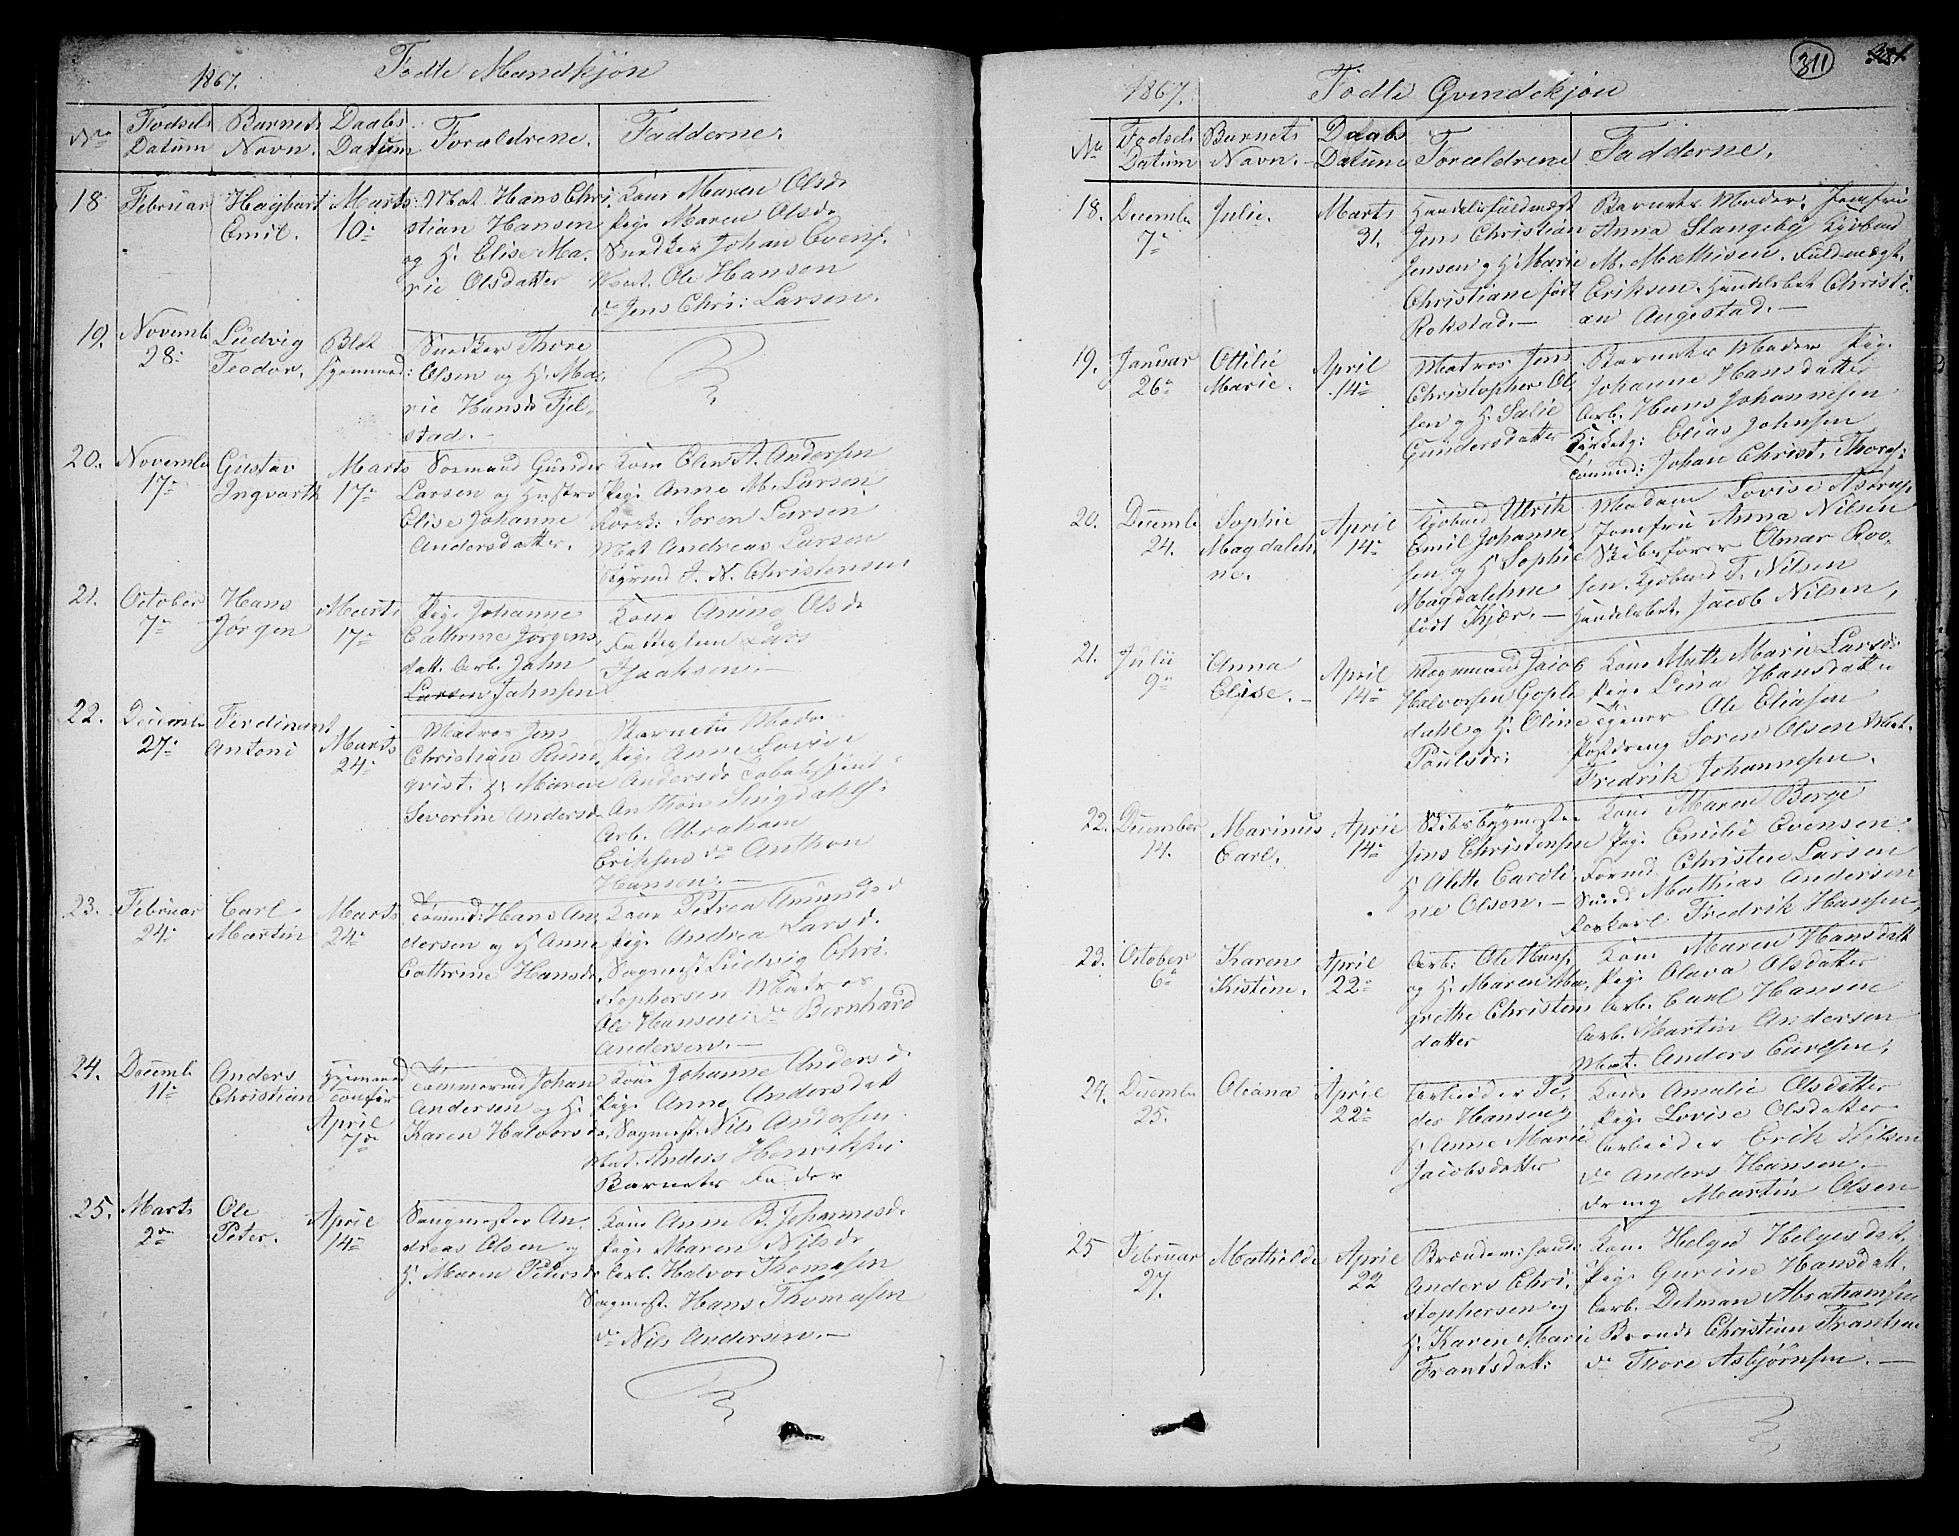 1867. Fødte Mandkjøn
No Fødsels Datum Barnets Navn. Daabs Datum Forældrene. Fadderne.
18 Februar Hagbart Emil. Marts 10de Mat. Hans Chri
stian Hansen
og H. Elise Ma
rie Olsdatter
Kone Maren Olsd
Pige Maren Olsd
Snedker Johan Evens.
Mat. Ole Hansen
do Jens Chri: Larsen.
19. Novemb 28de Ludvig Teodor. Blet hjemmed:
Snedker Thore
Olsen og H. Ma
rie Hansd Fjel
stad.
20. Novembe 17de Gustav Ingvarth Marts 17de
Sømand Gunder
Larsen og Hustro
Elise Johanne
Andersdatter.
Kone Oline A. Andersen
Pige Anne M. Larsen
Søren Larsen
Mat Andreas Larsen
J. N. Christensen.
21. October 7de Hans Jørgen Marts 17de
Pige Johanne
Cathrine Jørgens
datt. Arb. John
Larsen Johnsen
Kone Anine Olsd
Lars
Isaksen.
22. Decembe 27de Ferdinant Antoni Marts 24de
Matros Jens
Christian Rune
qvist. H. Maren
Severine Andersd.
Barnets Moder
Pige Anne Lovise
Andersd
Anthon
Arb. Abraham
Eriksen do Anthon
Hansen.
23. Februar 24de Carl Martin Marts 24de
Tømmd: Hans An
dersen og H Anne
Cathrine Hansd.
Kone Petrea Amunds d
Pige Andrea Larsd.
Sagmest Ludvig Chri
stophersen Matros
Ole Hansen do Bernhard
Andersen.
24. Decemb 11te Anders Christian Hjemmed Confir April 7de
Tømmermd Johan
Andersen og H.
Karen Halvorsd
Kone Johanne Anders d.
Pige Anne Andersdatt
Sagmest. Nils Andersen
Mat. Anders Henriksen
Barnets Fader
25. Marts 2den Ole Peter. April 14de
Saugmester An
dreas Olsen og
H. Maren Petersd
Kone Anne B. Johannesd.
Pige Maren Nilsd
Arb. Halvor Thomesen
Sagmest. Hans Thomesen
do Nils Andersen.
311
1867. Fødte Qvindekjøn
No Fødsels Datum Barnets Navn. Daabs Datum Forældrene Fadderne.
18. Decembe 7de Julie. Marts 31.
Handelsfuldmægt
Jens Christian
Jensen og H. Marie
Christiane født
Rokstad.
Barnets Moder, Jomfru
Anna Stangeby Kjøbmd
M. Mathisen. Fuldmægt.
Eriksen. Handelsbet Christi
an Angestad.
19. Januar 26de Ottilie Marie. April 14de
Matros Jens
Christopher Ol
sen og H. Julie
Gundersdatter
Barnets Moder Pige
Johanne Hansdatter
Arb. Hans Johannesen
Elias Johnsen
Tømmd: Johan Christ. Thores:
20. Decembe 24. Sophie Magdalene. April 14de
Kjøbmd Ulrik
Emil Johanne
sen og H. Sophie
Magdalehne
født Kjær.
Madam Lovise Astrup
Jomfru Anna Nilsen
Skibsfører Elmar Roo
sen. Kjøbmd T. Nilsen
Handelsbet. Jacob Nilsen.
21. Julii 9de Anna Elise. April 14de
Jacob
Halvorsen Gople
dahl og H. Oline
Poulsdr:
Kone Mette Marie Larsd:
Pige Lina Hansdatter
Ole Eliasen
Søren Olsen Mat.
Fredrik Johannesen.
22. December 14. Marinus Carl. April 14de
Skibsbygmester
Jens Christensen
H Alette Caroli
ne Olsen.
Kone Maren Berge
Pige Emilie Evensen
Formd Christen Larsen
Smed Mathias Andersen
Fredrik Hansen
23. October 6te Karen Kistine. April 22de
Arb: Ole Hans.
og H. Maren Ma
grethe Christens
datter
Kone Maren Hansdatt
Pige Olava Olsdatter
Arb. Carl Hansen
Arb. Martin Andersen
Mat. Anders Carlsen.
24. Decembe 25. Oleana April 22de
Arbeider Pe
der Hansen og
H. Anne Marie
Jacobsdatter
Kone Amalie Olsdatter
Pige Lovise Olsdatter
Arbeider Erik Nilsen
do Anders Hansen.
Dreng Martin Olsen
25 Februar 27. Mathilde April 22
Anders Chri
stophersen og
H. Karen Marie
Frantsdatt:
Kone Helged Helgesdat.
Pige Gurine Hansdatt.
Arb. Ditman Abrahamsen
Christian Frantsen
do Thore Asbjørnsen.